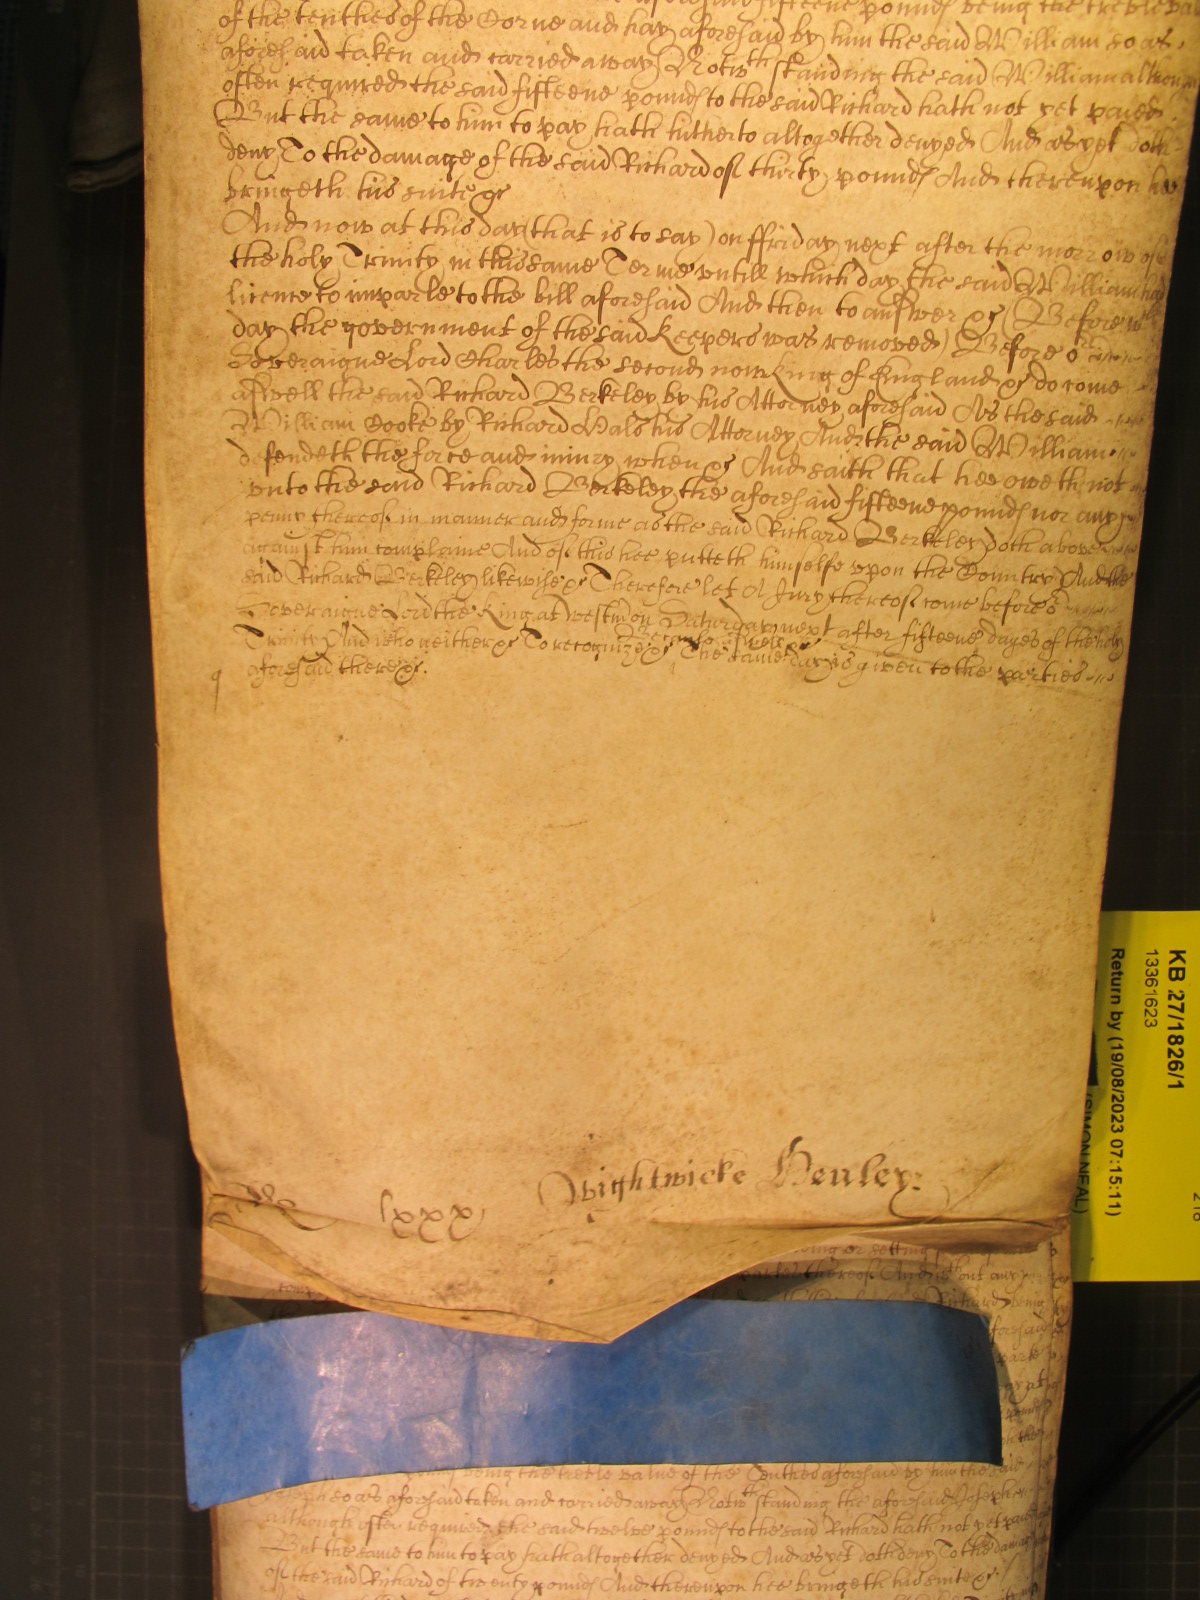 aforesaid fifteene pounds being the treble
of the tenthes of the Corne and hay aforesaid by him the said William so as
aforesaid taken and carried away Notwth standing the said William although
often required the said fifteene pounds to the said Richard hath not yet paied
But the same to him to pay hath hitherto altogether denyed And as yet doth
deny To the damage of the said Richard of thirty pounds And thereupon hee
bringeth his suite &c
And now at this day (that is to say) on ffriday next after the morrow of
the holy Trinity in this same Terme vntill which day the said William had
licence to imparle to the bill aforesaid And then to answer &c (Before wch
day the government of the said Keepers was removed) Before or
Soveraigne Lord Charles the second now King of England &c do come
aswell the said Richard Berkeley by his Attorney aforesaid As the said
William Cooke by Richard Hals his Attorney And the said William
defendeth the force and iniury when &c And saith that hee oweth not
vnto the said Richard Berkeley the aforesaid fifteene pounds nor any
penny thereof in manner and forme as the said Richard Berkeley doth above
against him complaine And of this hee putteth himselfe vpon the Country And the
said Richard Berkeley likewise &c Therefore let A Jury thereof come before or
Soveraigne Lord the King at Westm on Saturday next after fifteene dayes of the holy
Trinity And who neither &c To recognize &c Because aswell &c The same day is given to the parties
aforesaid there &c.
lxxx
Wightwicke Henley:
KB 27/1826/1
13361623
Return by (19/08/2023 07:15:11)
(SIMON NEAL)
being or setting
thereof And
Richard being
being the treble value of the Tenthes aforesaid by him the said
Joseph so as aforesaid taken and carried away Notwth standing the aforesaid Joseph
although often required the said twelve pounds to the said Richard hath not yet paied
But the same to him to pay hath altogether denyed And as yet doth deny To the damage
of the said Richard of twenty pounds And thereupon hee bringeth his suite &c